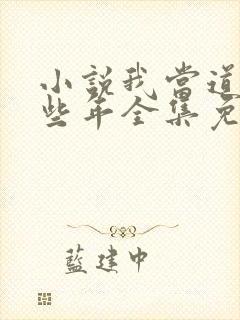 小說我當道
些年全集免
藍建中